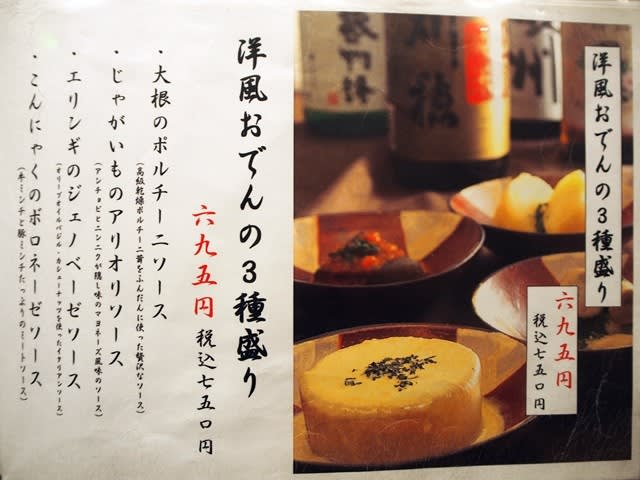 洋風おでんの3種盛り
六九五円
税込七五〇円
家門
穂
州
洋風おでんの3種盛り
六九五円 税込七五〇円
・大根のポルチーニソース
(高級乾燥ポルチーニ茸をふんだんに使った贅沢なソース)
・じゃがいものアリオリソース
(アンチョビとニンニクが隠し味のマヨネーズ風味のソース)
・エリンギのジェノベーゼソース
(オリーブオイルバジル・カシューナッツを使ったイタリアンソース)
・こんにゃくのボロネーゼソース
(牛ミンチと豚ミンチたっぷりのミートソース)